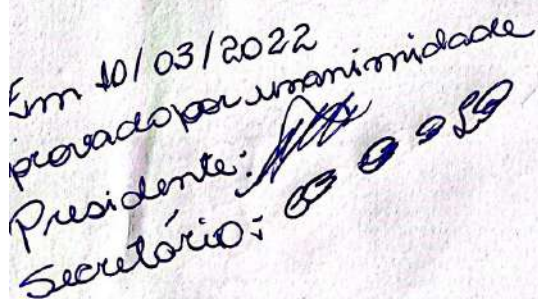 Em 10/03/2022
provado por unanimidade
Presidente:
Secretário: